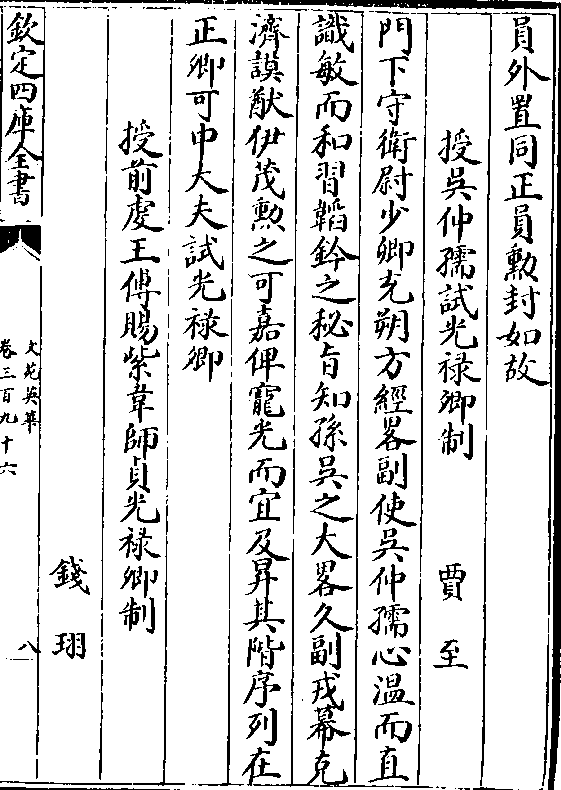 員外置同正員勲封如故
授吳仲孺試光禄卿制 賈至
門下守衛尉少卿充朔方經畧副使吳仲孺心溫而直
識敏而和習韜鈐之秘旨知孫吳之大畧久副戎幕克
濟謨猷伊茂勲之可嘉俾寵光而宜及昇其階序列在
正卿可中大夫試光禄卿
授前虔王傅賜紫韋師貞光禄卿制
錢珝
欽定四庫全書
文苑英華
卷三百九十六
八